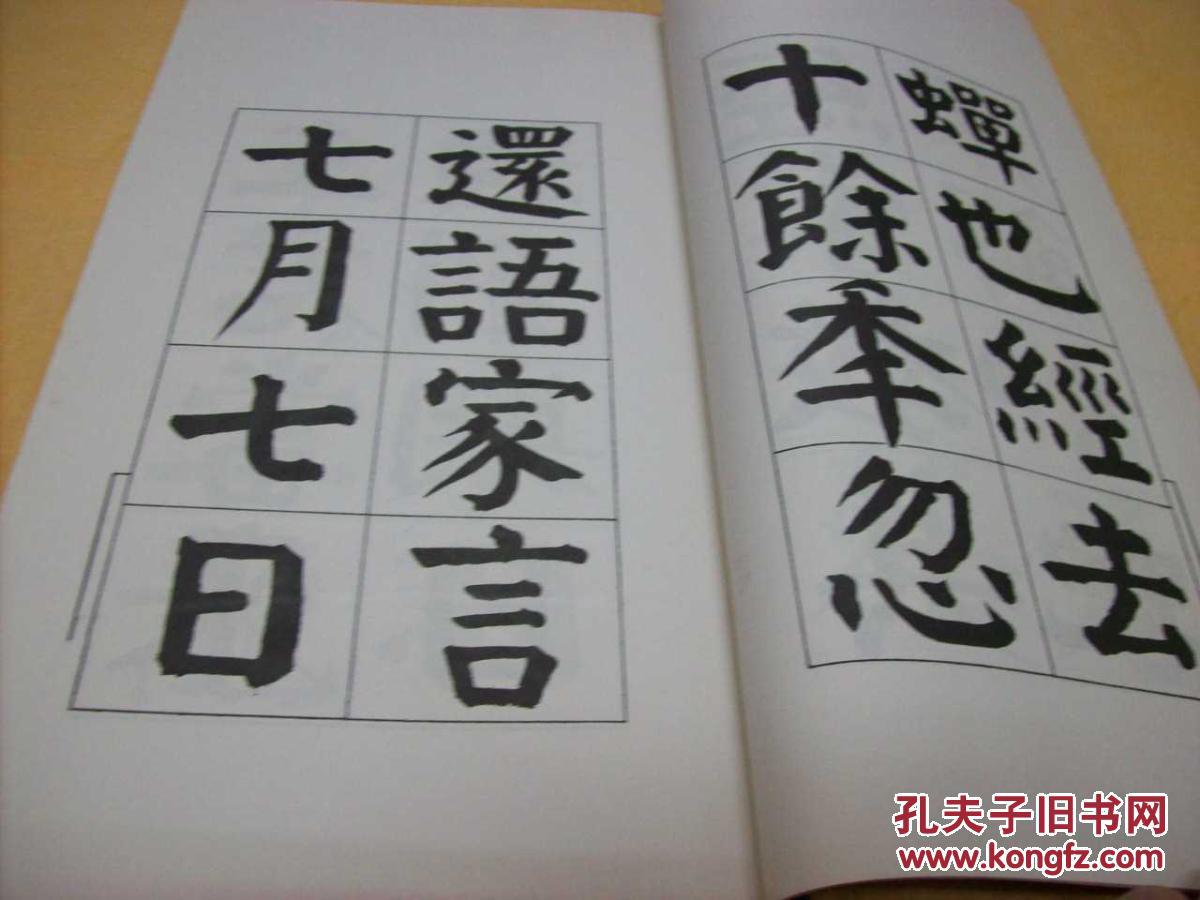 蟬也經去
十餘秊忽
還語家言
七月七日
孔夫子旧书网
www.kongfz.com